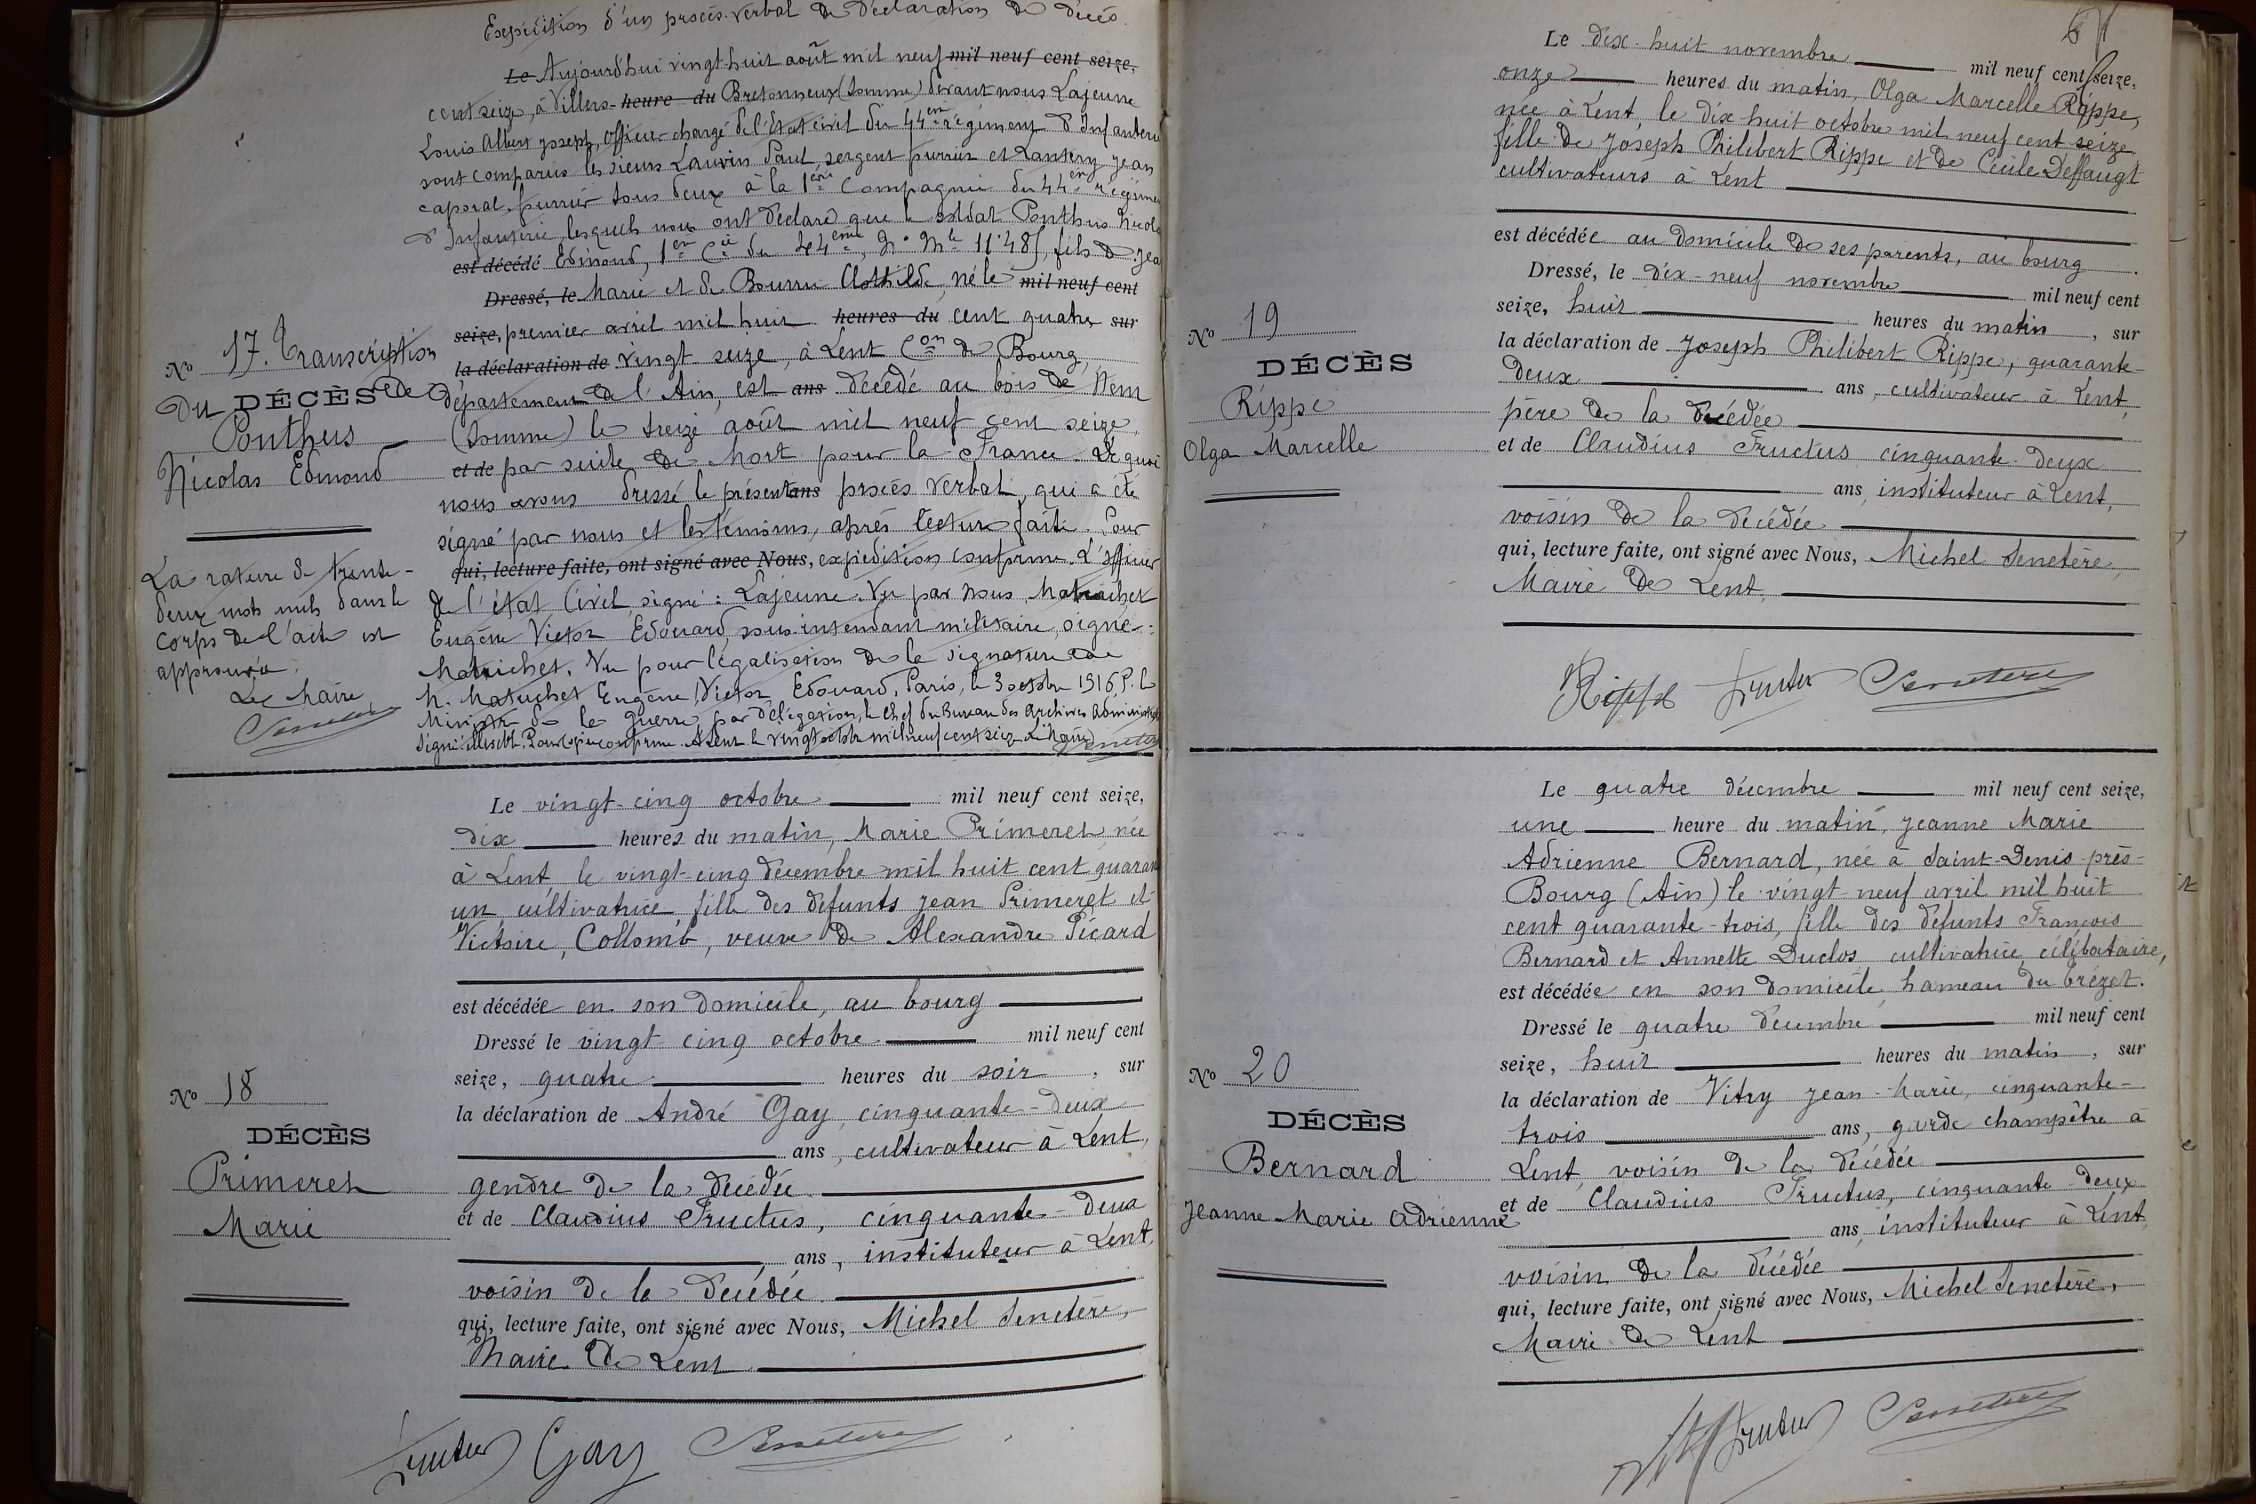 Expédition d'un procès-verbal de déclaration de décès.
Le Aujourd'hui vingt-huit août mil neuf mil neuf cent seize,
cent seize, à Villers- heure du Bretonneux (Somme) devant nous Lajeune
Louis Albert Joseph, officier chargé de l'Etat civil du 44ème régiment d'Infanterie
sont comparus les sieurs Lauvin Paul, sergent fourrier et Lantery Jean
caporal fourrier tous deux à la 1ère Compagnie du 44è Régiment
d'Infanterie, lesquels nous ont déclaré que le soldat Ponthus Nicolas
est décédé Edmond, 1ère Cie du 44ème, N° Mle 11485, fils de Jean
Dressé, le Marie et de Bourru Clothilde, né le mil neuf cent
seize, premier avril mil huit heures du cent quatre sur
la déclaration de vingt seize, à Lent Con de Bourg,
département de l'Ain, est ans décédé au bois de Hem
(Somme) le treize août mil neuf cent seize,
et de par suite de Mort pour la France. De quoi
nous avons dressé le présent ans procès verbal, qui a été
signé par nous et les témoins, après lecture faite. Pour
qui, lecture faite, ont signé avec Nous, expédition conforme. L'officier
de l'état Civil, signé : Lajeune. Vu par nous, Matuchet
Eugène Victor Edouard, sous-intendant militaire, signé :
Matuchet. Vu pour légalisation de la signature de
M. Matuchet Eugène, Victor, Edouard, Paris, le 3 octobre 1916, P. le
Ministre de la guerre, par délégation, le Chef du Bureau des Archives Administrat
Signé: illisible. Pour copie conforme. A Lent le vingt octobre mil neuf cent seize. Le Maire Senetère
No 17. Transcription
Du DÉCÈS de
Ponthus
Nicolas Edmond
La rature de trente-
deux mots nuls dans le
corps de l'acte est
approuvée.
Le Maire
Senetère
Le vingt-cinq octobre mil neuf cent seize,
dix heures du matin, Marie Primeret née
à Lent, le vingt-cinq décembre mil huit cent quaran
un, cultivatrice, fille des défunts Jean Primeret et
Victoire, Collomb, veuve de Alexandre Picard
est décédée en son domicile, au bourg
Dressé le vingt cinq octobre mil neuf cent
seize, quatre heures du soir, sur
la déclaration de André Gay, cinquante-deux
ans, cultivateur à Lent,
gendre de la décédée
et de Claudius Fructus, cinquante-deux
ans, instituteur à Lent,
voisin de la décédée
qui, lecture faite, ont signé avec Nous, Michel Senetère,
Maire de Lent
No 18
DÉCÈS
Primeret
Marie
Fructus Gay Senetère
Le dix-huit novembre mil neuf cent seize,
onze heures du matin, Olga Marcelle Rippe,
née à Lent, le dix huit octobre mil neuf cent seize
fille de Joseph Philibert Rippe et de Cécile Deffaugt
cultivateurs à Lent
est décédée au domicile de ses parents, au bourg.
Dressé, le dix-neuf novembre mil neuf cent
seize, huit heures du matin, sur
la déclaration de Joseph Philibert Rippe, quarante-
deux ans, cultivateur à Lent,
père de la décédée
et de Claudius Fructus cinquante-deux
ans, instituteur à Lent,
voisin de la décédée
qui, lecture faite, ont signé avec Nous, Michel Senetère,
Maire de Lent,
No 19
DÉCÈS
Rippe
Olga Marcelle
Rippe Fructus Senetère
Le quatre décembre mil neuf cent seize,
une heure du matin, Jeanne Marie
Adrienne Bernard, née à Saint-Denis-près-
Bourg (Ain) le vingt-neuf avril mil huit
cent quarante-trois, fille des défunts François
Bernard et Annette Duclos cultivatrice, célibataire,
est décédée en son domicile, hameau du Grézet.
Dressé le quatre décembre mil neuf cent
seize, huit heures du matin, sur
la déclaration de Vitry Jean-Marie, cinquante-
trois ans, garde champêtre à
Lent, voisin de la décédée
et de Claudius Fructus, cinquante-deux
ans, instituteur à Lent,
voisin de la décédée
qui, lecture faite, ont signé avec Nous, Michel Senetère,
Maire de Lent
No 20
DÉCÈS
Bernard
Jeanne Marie Adrienne
Fructus Senetère